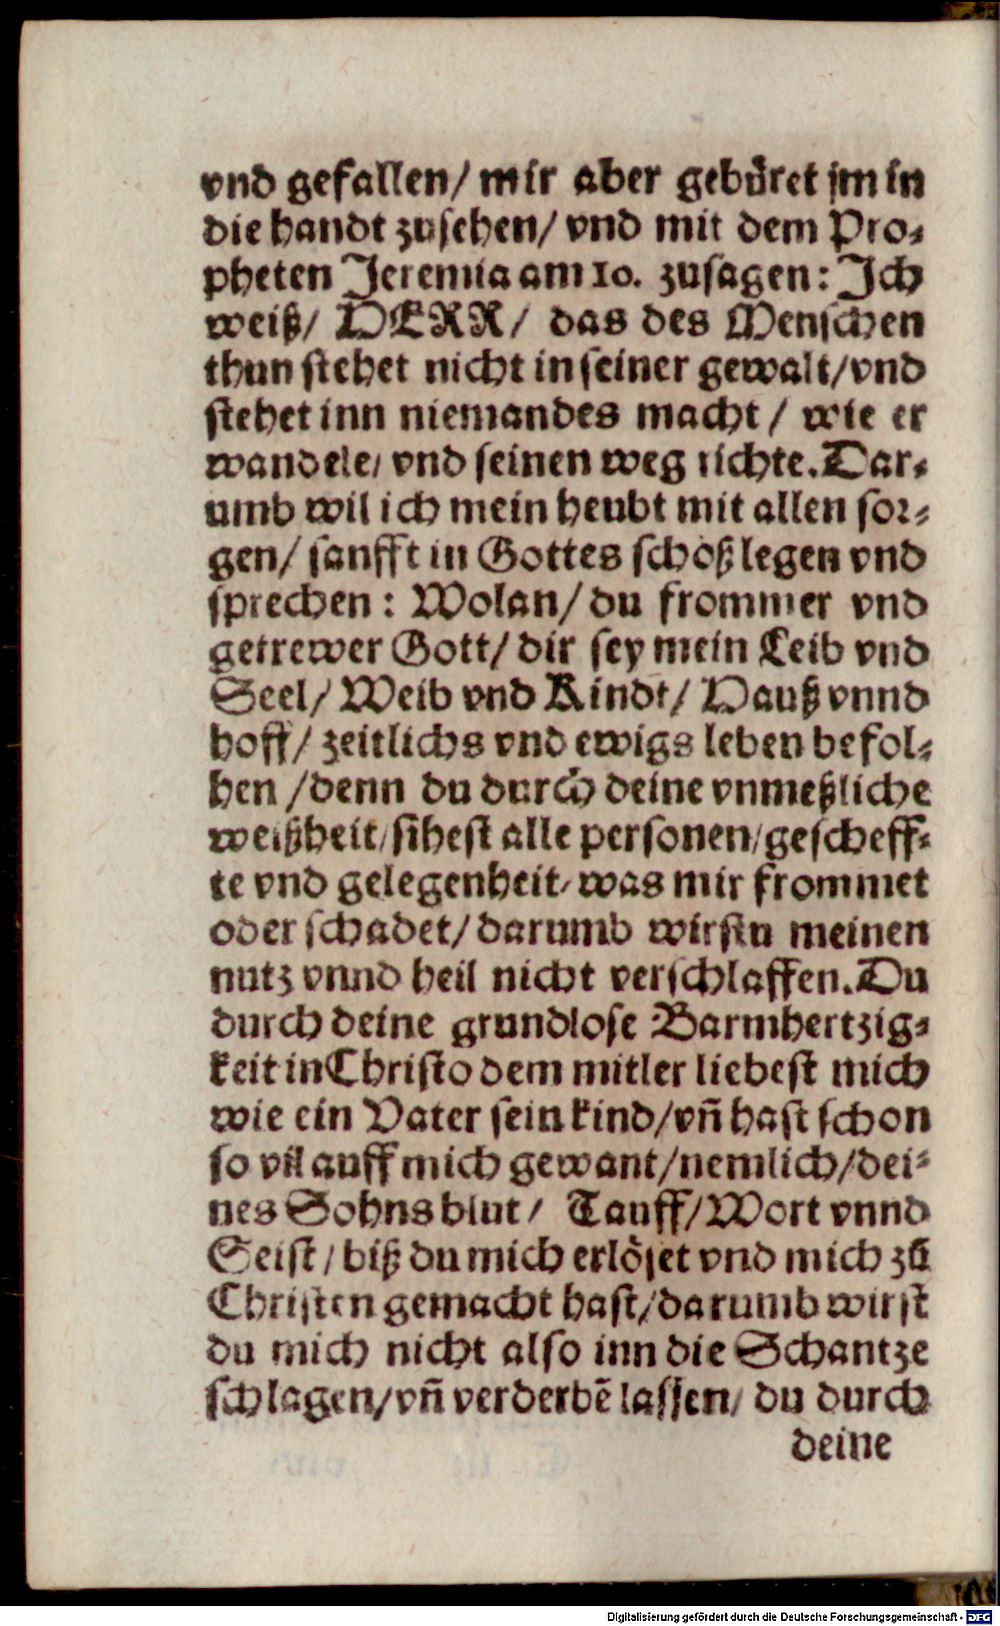 vnd gefallen/ mir aber gebüret jm in
die handt zusehen/ vnd mit dem Pro-
pheten Jeremia am 10. zusagen: Ich
weiß/ HERR/ das des Menschen
thun stehet nicht in seiner gewalt/ vnd
stehet inn niemandes macht/ wie er
wandele/ vnd seinen weg richte. Dar-
umb wil ich mein heubt mit allen sor-
gen/ sanfft in Gottes schoß legen vnd
sprechen: Wolan/ du frommer vnd
getrewer Gott/ dir sey mein Leib vnd
Seel/ Weib vnd Kindt/ Hauß vnnd
hoff/ zeitlichs vnd ewigs leben befol-
hen/ denn du durch deine vnmeßliche
weißheit/ sihest alle personen/ gescheff-
te vnd gelegenheit/ was mir frommet
oder schadet/ darumb wirstu meinen
nutz vnnd heil nicht verschlaffen. Du
durch deine grundlose Barmhertzig-
keit in Christo dem mitler liebest mich
wie ein Vater sein kind/ vñ hast schon
so vil auff mich gewant/ nemlich/ dei-
nes Sohns blut/ Tauff/ Wort vnnd
Geist/ biß du mich erlöset vnd mich zū
Christen gemacht hast/ darumb wirst
du mich nicht also inn die Schantze
schlagen/ vñ verderbē lassen/ du durch
deine
Digitalisierung gefördert durch die Deutsche Forschungsgemeinschaft - DFG